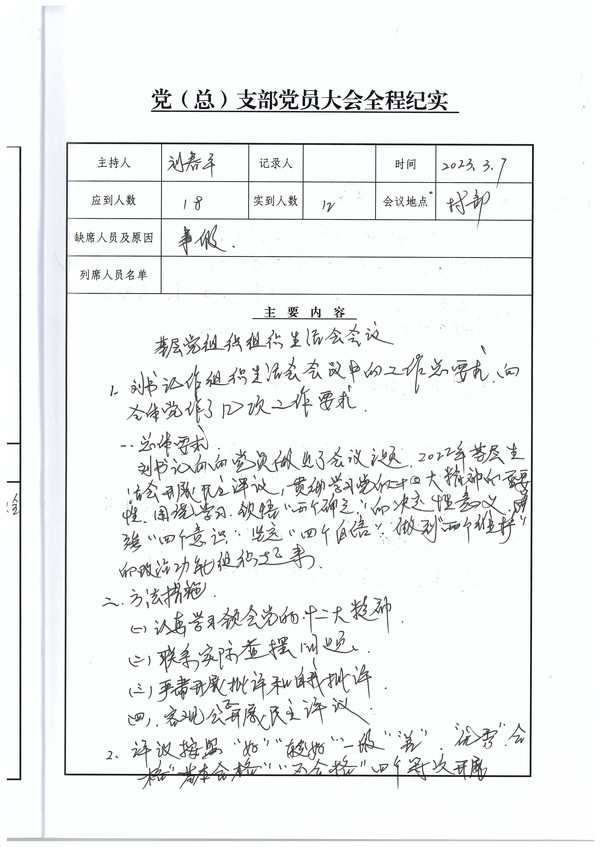 党（总）支部党员大会全程纪实
主持人 刘春平 记录人 时间 2023.3.7
应到人数 18 实到人数 12 会议地点 村部
缺席人员及原因 事假.
列席人员名单
主要内容
基层党组织组织生活会会议
1. 刘书记作组织生活会会议中的工作总要求，向
全体党 作了 次工作要求.
一.总体要求
刘书记向 党员 了会议议题. 2022年基层生
活会开展民主评议，贯彻学习党的 大精神的重要
性. 学习. 领悟"两个确立"的决定性意义.增
强"四个意识"坚定"四个自信"做到"两个维护"
的政治功能组织
二.方法措施
(一)认真学习领会党的 二十大精神
(二)联系实际查摆问题.
(三)严肃开展批评和自我批评
四，客观公 开展民主评议
2. 评议按照"好""较好"一般"差"."优秀"合
格"基本合格""不合格"四个等次开展